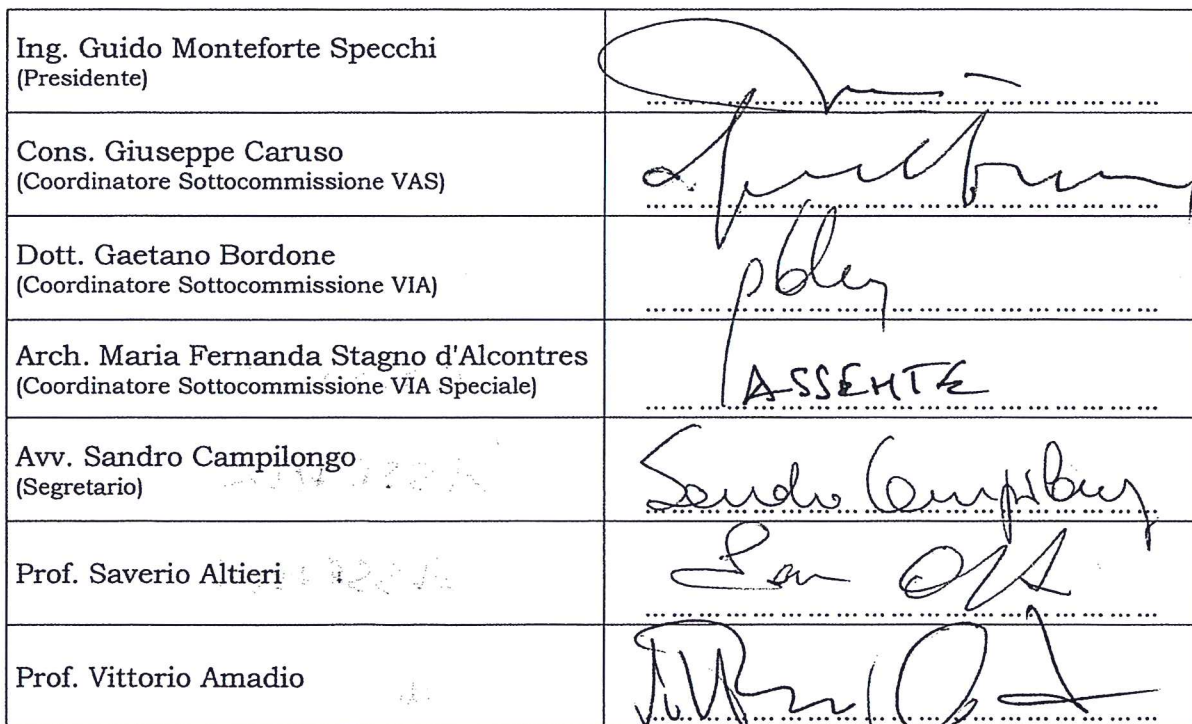 Ing. Guido Monteforte Specchi
(Presidente)
Cons. Giuseppe Caruso
(Coordinatore Sottocommissione VAS)
Dott. Gaetano Bordone
(Coordinatore Sottocommissione VIA)
Arch. Maria Fernanda Stagno d'Alcontres
(Coordinatore Sottocommissione VIA Speciale)
ASSENTE
Avv. Sandro Campilongo
(Segretario)
Sandro Campilongo
Prof. Saverio Altieri
Prof. Vittorio Amadio